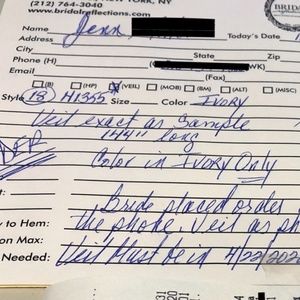 NEW YORK, NY
(212) 764-3040
www.bridalreflections.com
BRIDAL
Name Jenn
Today's Date
Address
City
State Zip
Phone (H) (WK)
Email (Fax)
(B) (HP) (VEIL) (BOM) (BM) (ALT) (MISC)
Style (IS) H1355 Size Color IVORY
Veil exact as Sample
"144" long
Color in IVORY Only
Bride placed order
y to Hem: the phone. Veil as ph
on Max:
Needed: Veil Must be in 4/22/202